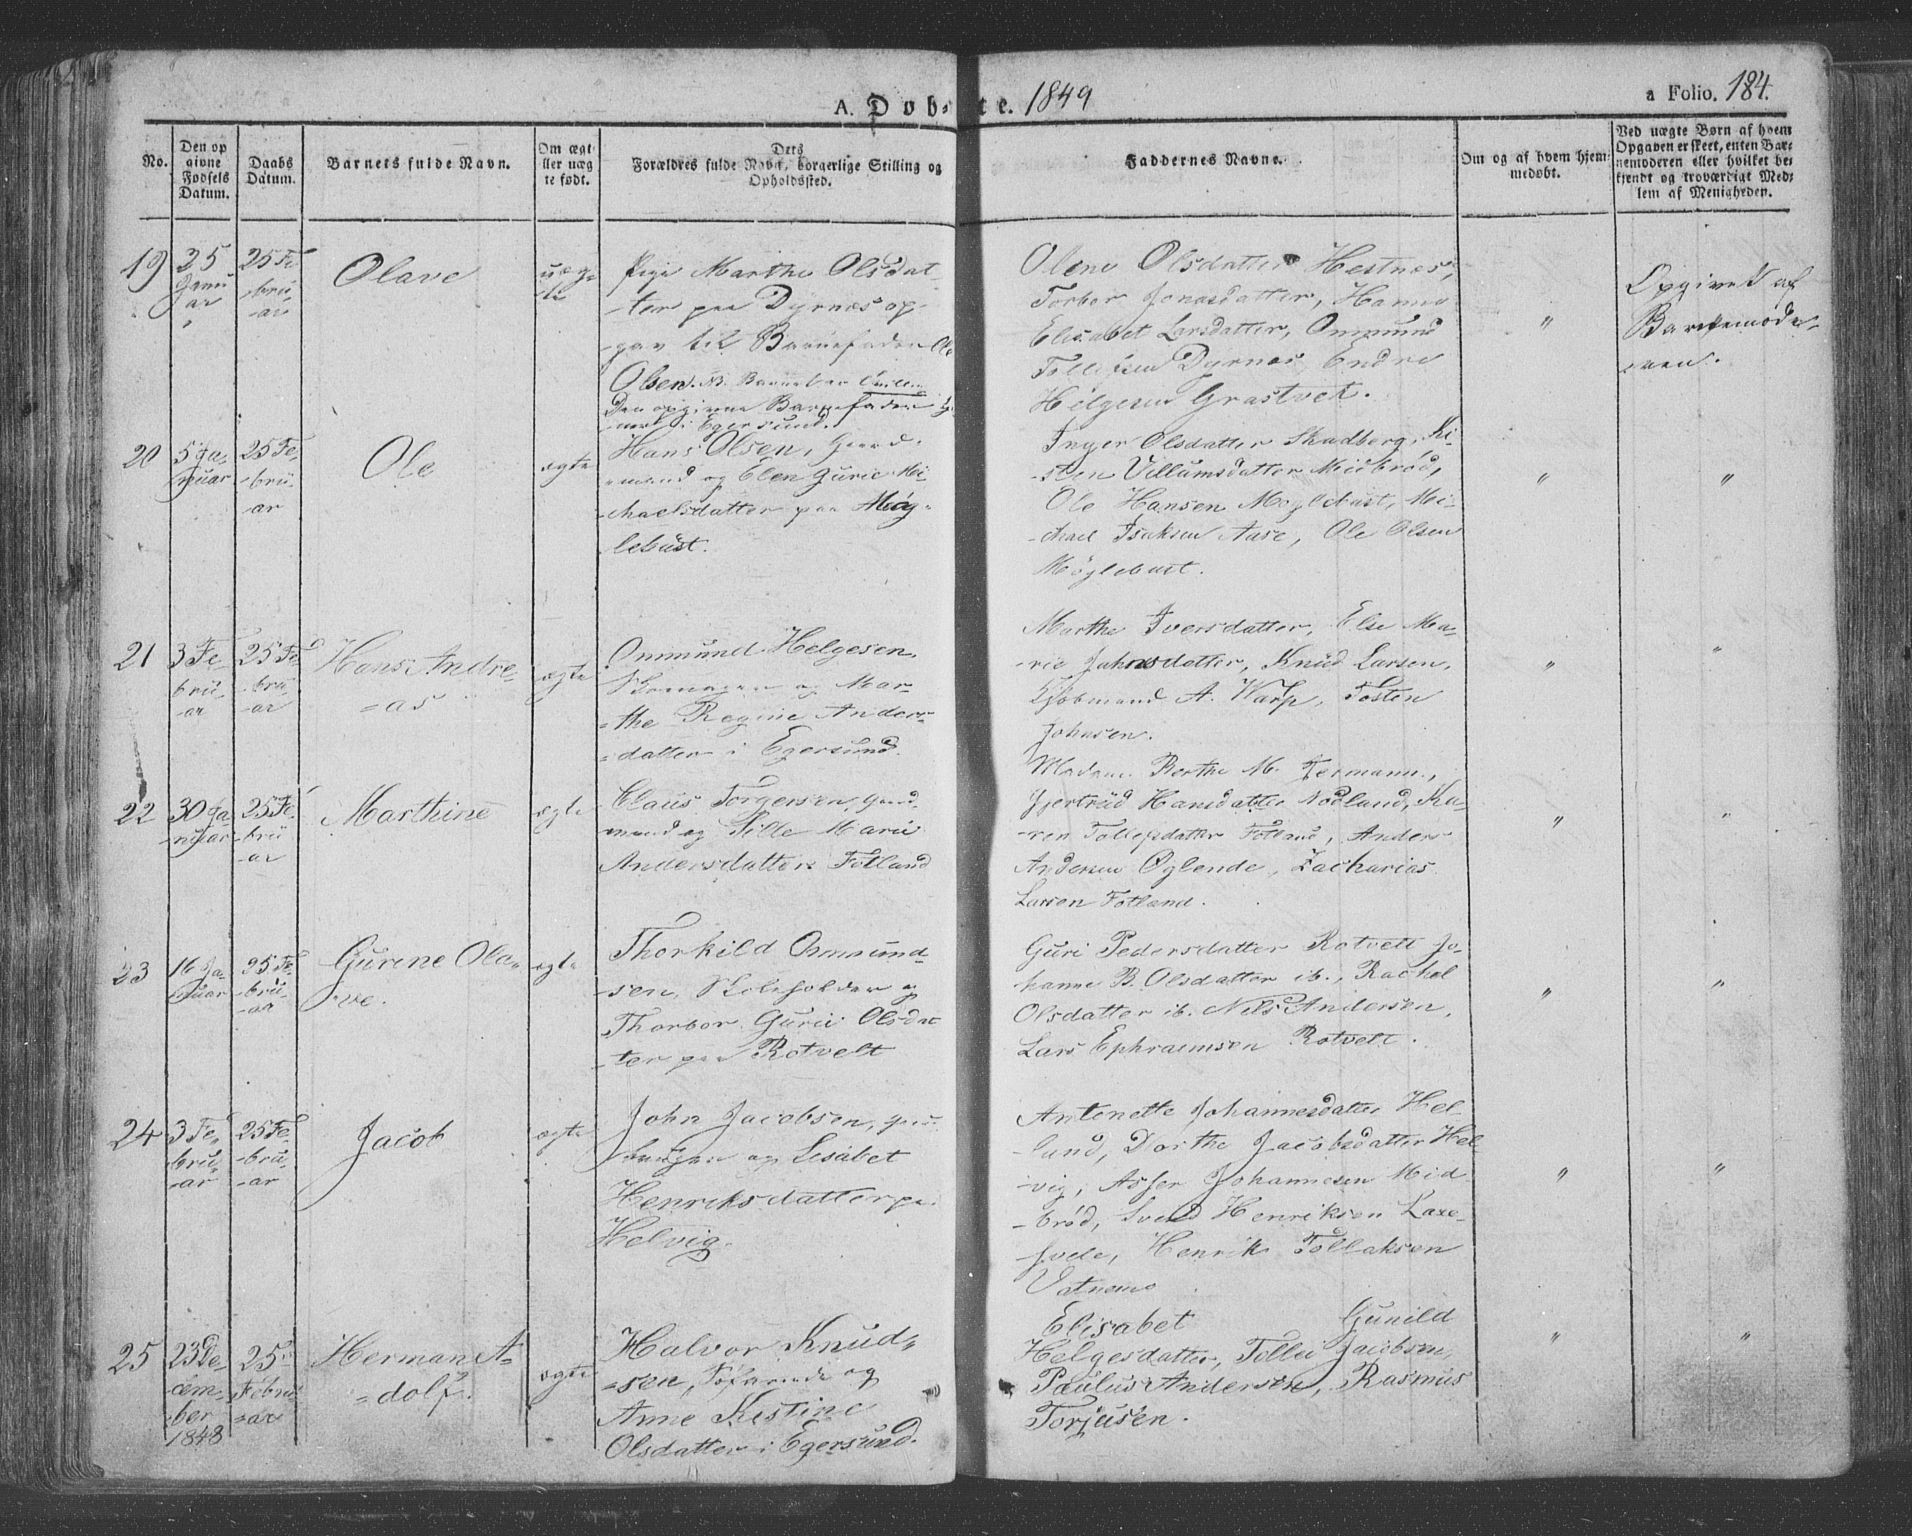 A. Døbte. 1849
a Folio. 184.
No.
Den opgivne Fødsels Datum.
Daabs Datum.
Barnets fulde Navn.
Om ægte eller uægte født.
Dets Forældres fulde Navn, borgerlige Stilling og Opholdssted.
Faddernes Navne.
Om og af hvem hjemmedøbt.
Ved uægte Børn af hvem Opgaven er skeet, enten Barnemoderen eller hvilket bekjendt og troværdigt Medlem af Menigheden.
19
25 Januar
25 Februar
Olave
uægte
Pige Marthe Olsdat-
-ter paa Dyrnæs op-
-gav til Barnefader Ole
Olsen. NB. Barnet er
Den opgivne Barnefader
i Egersund.
Olene Olsdatter Hestnes,
Torbor Jonasdatter, Hanne
Elisabet Larsdatter, Ommund
Tollefsen Dyrnes, Endre
Helgesen Grastvet.
"
Opgivet af
Barnemode-
-ren.
20
5 Januar
25 Februar
Ole
ægte
Hans Olsen, Gaard-
-mand og Elen Gurie Mi-
-chaelsdatter paa Møg-
-lebust.
Inger Olsdatter Skadberg, Ki-
-sten Villumsdatter Midbrød,
Ole Hansen Møglebust, Mi-
-chael Isaksen Aase, Ole Olsen
Møglebust.
"
"
21
3 Februar
25 Februar
Hans Andre-
-as
ægte
Ommund Helgesen,
Skomager og Mar-
-the Regine Anders-
-datter i Egersund.
Marthe Iversdatter, Else Ma-
-rie Jahnsdatter, Knud Larsen,
Kjøbmand A. Warp, Tosten
Johnsen.
"
"
22
30 Januar
25 Februar
Marthine
ægte
Claus Torgersen, Gaard-
mand og Sille Marie
Andersdatter Fotland
Madam Berthe M.
Gjertrud Hansdatter Nodland, Ka-
-ren Tollefsdatter Fotland, Anders
Andersen Øglende, Zacharias
Larsen Fotland.
"
"
23
16 Januar
25 Februar
Gurine Ola-
-ve.
ægte
Thorkild Ommund-
-sen, Skoleholder og
Thorbor Gurie Olsdat
-ter paa Rotvelt
Guri Pedersdatter Rotvelt Jo-
hanne B. Olsdatter ib., Rachel
Olsdatter ib. Nils Andersen,
Lars Ephraimsen Rotvelt.
"
"
24
3 Februar
25 Februar
Jacob
ægte
John Jacobsen,
og Lisabet
Henriksdatter pa
Helvig.
Antonette Johannesdatter Hel-
-land, Dorthe Jacobsdatter Hel-
-vig, Asser Johannesen Mid-
-brød, Svend Henriksen Laxe-
-svele, Henrik Tollaksen
Vatnemo
"
"
25
23 December 1848
25 Februar
Herman A-
-dolf.
ægte
Halvor Knud-
-sen, Søfarende og
Anne Kestine
Olsdatter i Egersund.
Elisabet Gunild
Helgesdatter, Tollei Jacobsen,
Paulus Andersen, Rasmus
Torjusen.
"
"